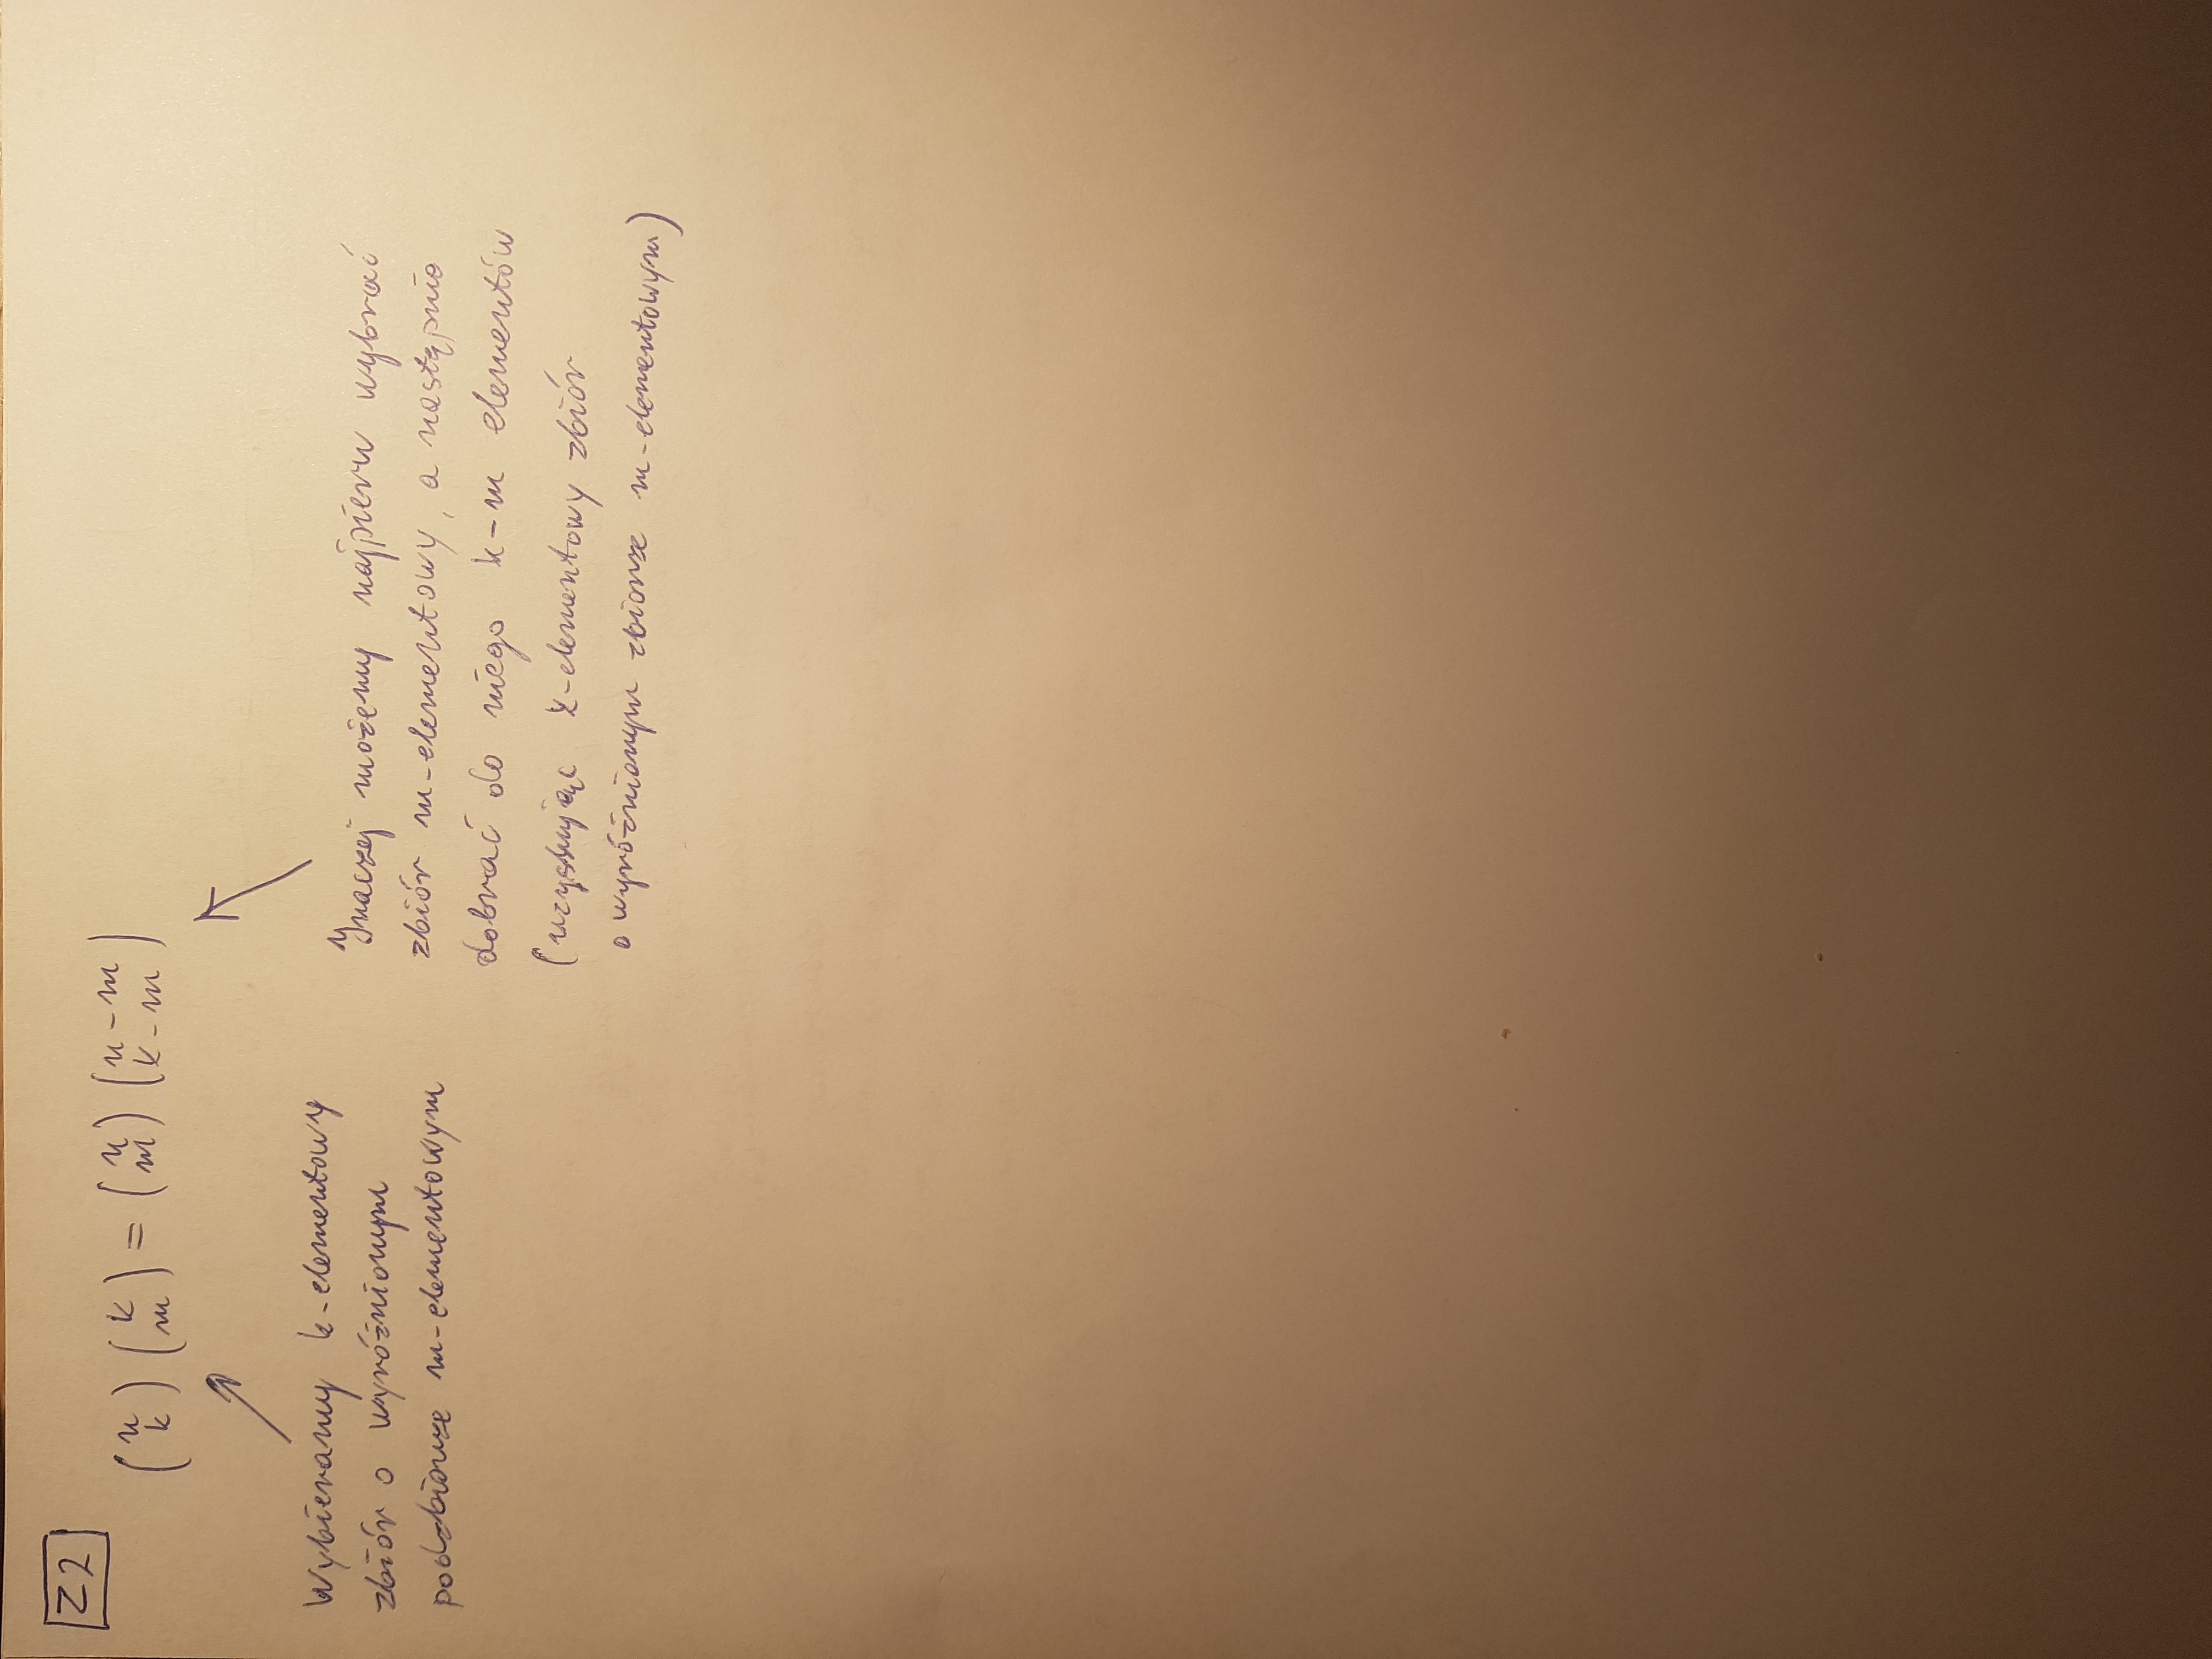 Z2
(n k) (k m) = (n m) (n-m k-m)
Wybieramy k-elementowy
zbiór o wyróżnionym
podzbiorze m-elementowym
Inaczej możemy najpierw wybrać
zbiór m-elementowy, a następnie
dobrać do niego k-m elementów
(uzyskując k-elementowy zbiór
o wyróżnionym zbiorze m-elementowym)